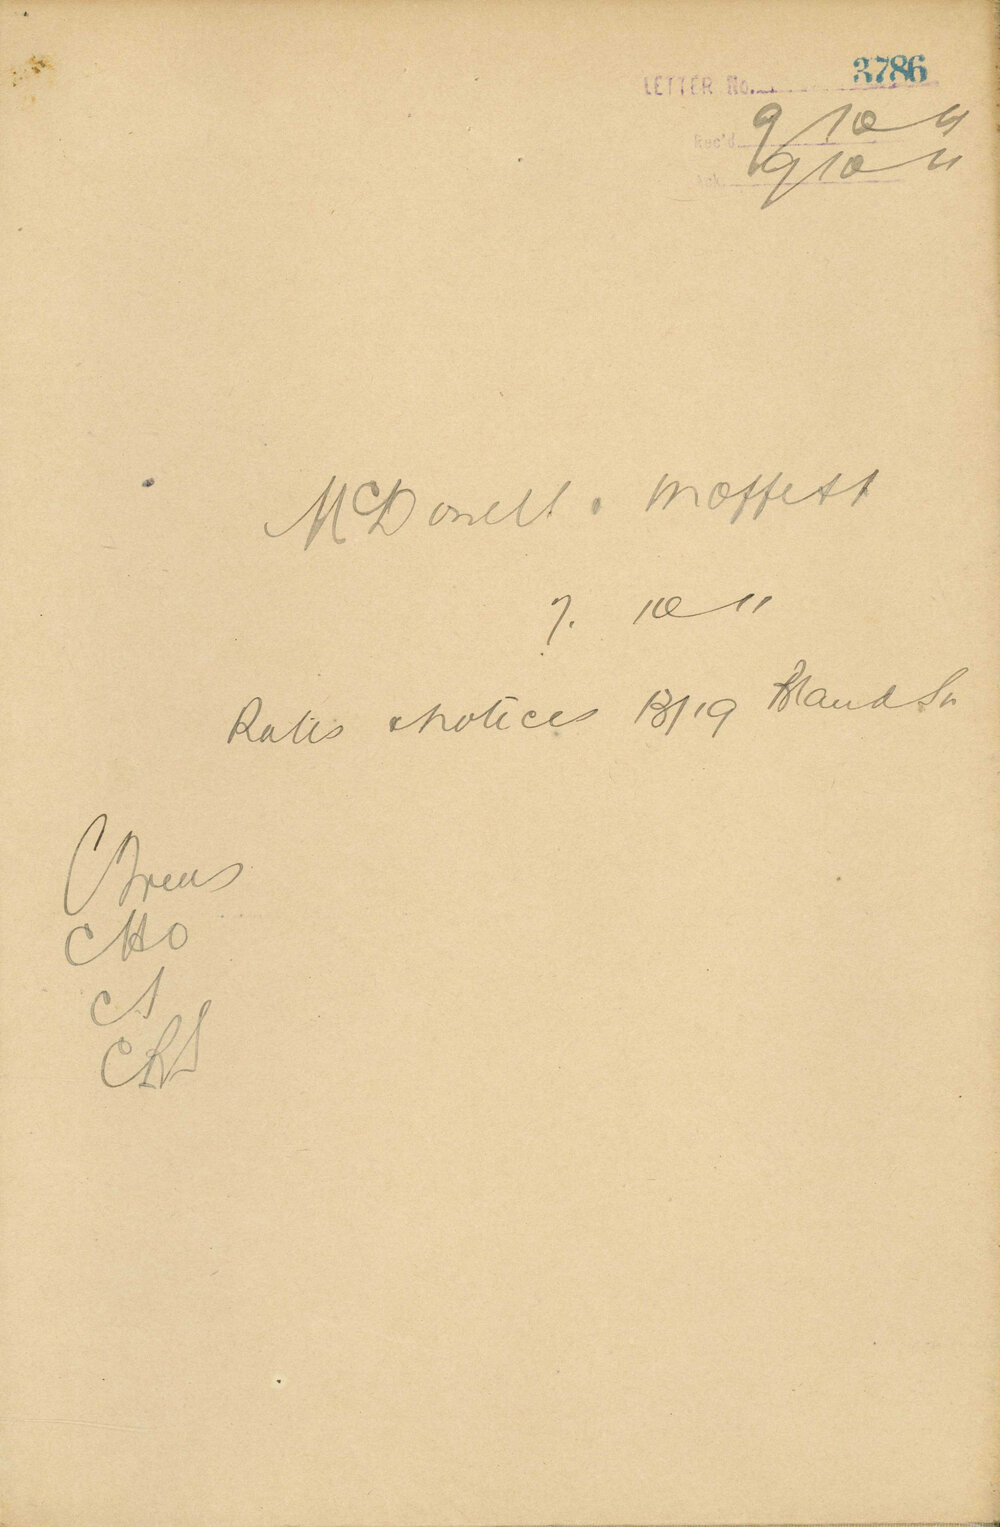 LETTER No. 3786
Rec'd 9/10 11
Ack. 9/10 11
McDonell & Moffett
7. 10 11
Rates notices 13/19 Bland St
C Treas
CHO
CS
CRS